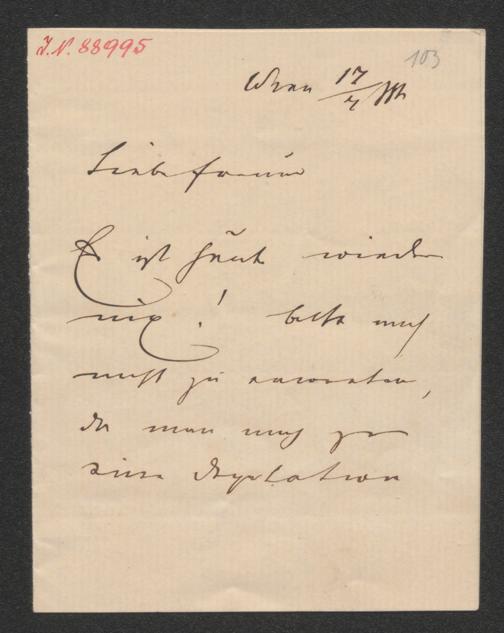 J.N. 88995
103
Wien 17/4
Liebe Freundin
Es ist heut wieder
nix! bitte mich
nicht zu erwarten,
da man mich zu
einer Deputation